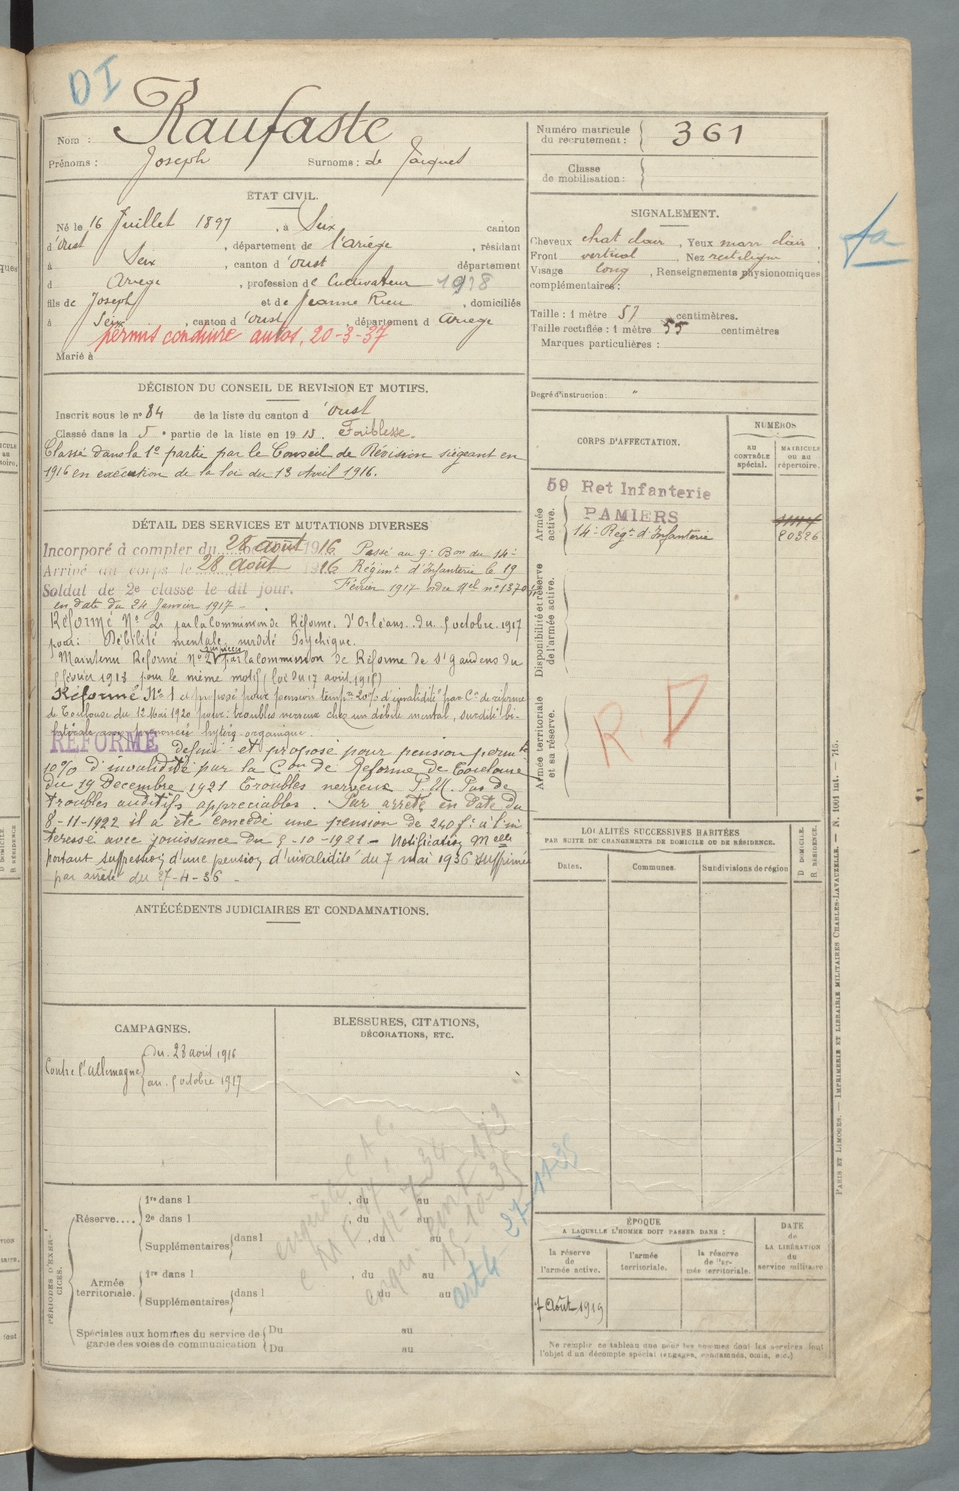 DI
Nom : Raufaste
Prénoms : Joseph Surnoms : de Jacquet
Numéro matricule du recrutement : 361
Classe de mobilisation :
ÉTAT CIVIL.
Né le 16 Juillet 1897, à Seix canton
d'Oust, département de l'Ariège, résidant
à Seix, canton d'Oust département
d Ariège, profession de Cultivateur 1918
fils de Joseph et de Jeanne Rieu, domiciliés
à Seix, canton d'Oust, département d Ariège
permis conduire autos, 20-3-37
Marié à
SIGNALEMENT.
Cheveux chat clair, Yeux marr clair,
Front vertical, Nez rectiligne
Visage long, Renseignements physionomiques
complémentaires :
Taille : 1 mètre 51 centimètres.
Taille rectifiée : 1 mètre 55 centimètres
Marques particulières :
Degré d'instruction : "
DÉCISION DU CONSEIL DE REVISION ET MOTIFS.
Inscrit sous le n° 84 de la liste du canton d'Oust
Classé dans la 5e partie de la liste en 1915. Faiblesse.
Classé dans la 1e partie par le Conseil de Révision siégeant en
1916 en exécution de la loi du 13 Avril 1916.
DÉTAIL DES SERVICES ET MUTATIONS DIVERSES
Incorporé à compter du 28 août 1916. Passé au 9e Bon du 14e
Arrivé au corps le 28 août 1916 Régimt d'Infanterie le 19
Soldat de 2e classe le dit jour. Février 1917 ordre Mel n° 1370
en date du 24 Janvier 1917 -
Réformé N° 2 par la Commission de Réforme d'Orléans du 5 octobre 1917
pour : Débilité mentale, surdité Psychique.
Maintenu Réformé N° 2 par la commission de Réforme de St Gaudens du
5 février 1918 pour le même motif (loi du 17 avril 1915)
Réformé N° 1 et proposé pour pension tempre 20% d'invalidité par Cn de réforme
de Toulouse du 12 Mai 1920 pour : troubles nerveux chez un débile mental, surdité bi-
latérale hystéro-organique.
RÉFORMÉ définif et proposé pour pension permte
10% d'invalidité par la Con de Réforme de Toulouse
du 19 Décembre 1921 Troubles nerveux P.M. Pas de
troubles auditifs appréciables. Par arrêté en date du
8-11-1922 il a été concédé une pension de 240 f. à l'in
téressé avec jouissance du 5-10-1921 - Notification Melle
portant suppression d'une pension d'invalidité du 7 mai 1936 supprimée
par arrêté du 27-4-36 -
CORPS D'AFFECTATION.
NUMÉROS
AU CONTRÔLE spécial.
MATRICULE OU AU répertoire.
Armée active.
59 Ret Infanterie
PAMIERS
14e Régt d'Infanterie 20326
Disponibilité et réserve de l'armée active.
Armée territoriale et sa réserve.
R. D
LOCALITÉS SUCCESSIVES HABITÉES
PAR SUITE DE CHANGEMENTS DE DOMICILE OU DE RÉSIDENCE.
Dates. Communes. Subdivisions de région
D. DOMICILE. R. RÉSIDENCE.
ANTÉCÉDENTS JUDICIAIRES ET CONDAMNATIONS.
CAMPAGNES.
Contre l'Allemagne du 28 août 1916
au 5 octobre 1917
BLESSURES, CITATIONS,
DÉCORATIONS, ETC.
27-11-35
art 4
PÉRIODES D'EXERCICES.
Réserve.... 1re dans l , du au
2e dans l , du au
Supplémentaires dans l , du au
Armée territoriale. 1re dans l , du au
Supplémentaires dans l du au
Spéciales aux hommes du service de Du au
garde des voies de communication Du au
ÉPOQUE
A LAQUELLE L'HOMME DOIT PASSER DANS :
la réserve de l'armée active.
l'armée territoriale.
la réserve de l'armée territoriale.
DATE de LA LIBÉRATION du service militaire
7 Août 1919
Ne remplir ce tableau que pour les hommes dont les services font
l'objet d'un décompte spécial (engagés, condamnés, omis, etc.)
PARIS ET LIMOGES. — IMPRIMERIE ET LIBRAIRIE MILITAIRES CHARLES-LAVAUZELLE. — N. 1001 int. — 715.